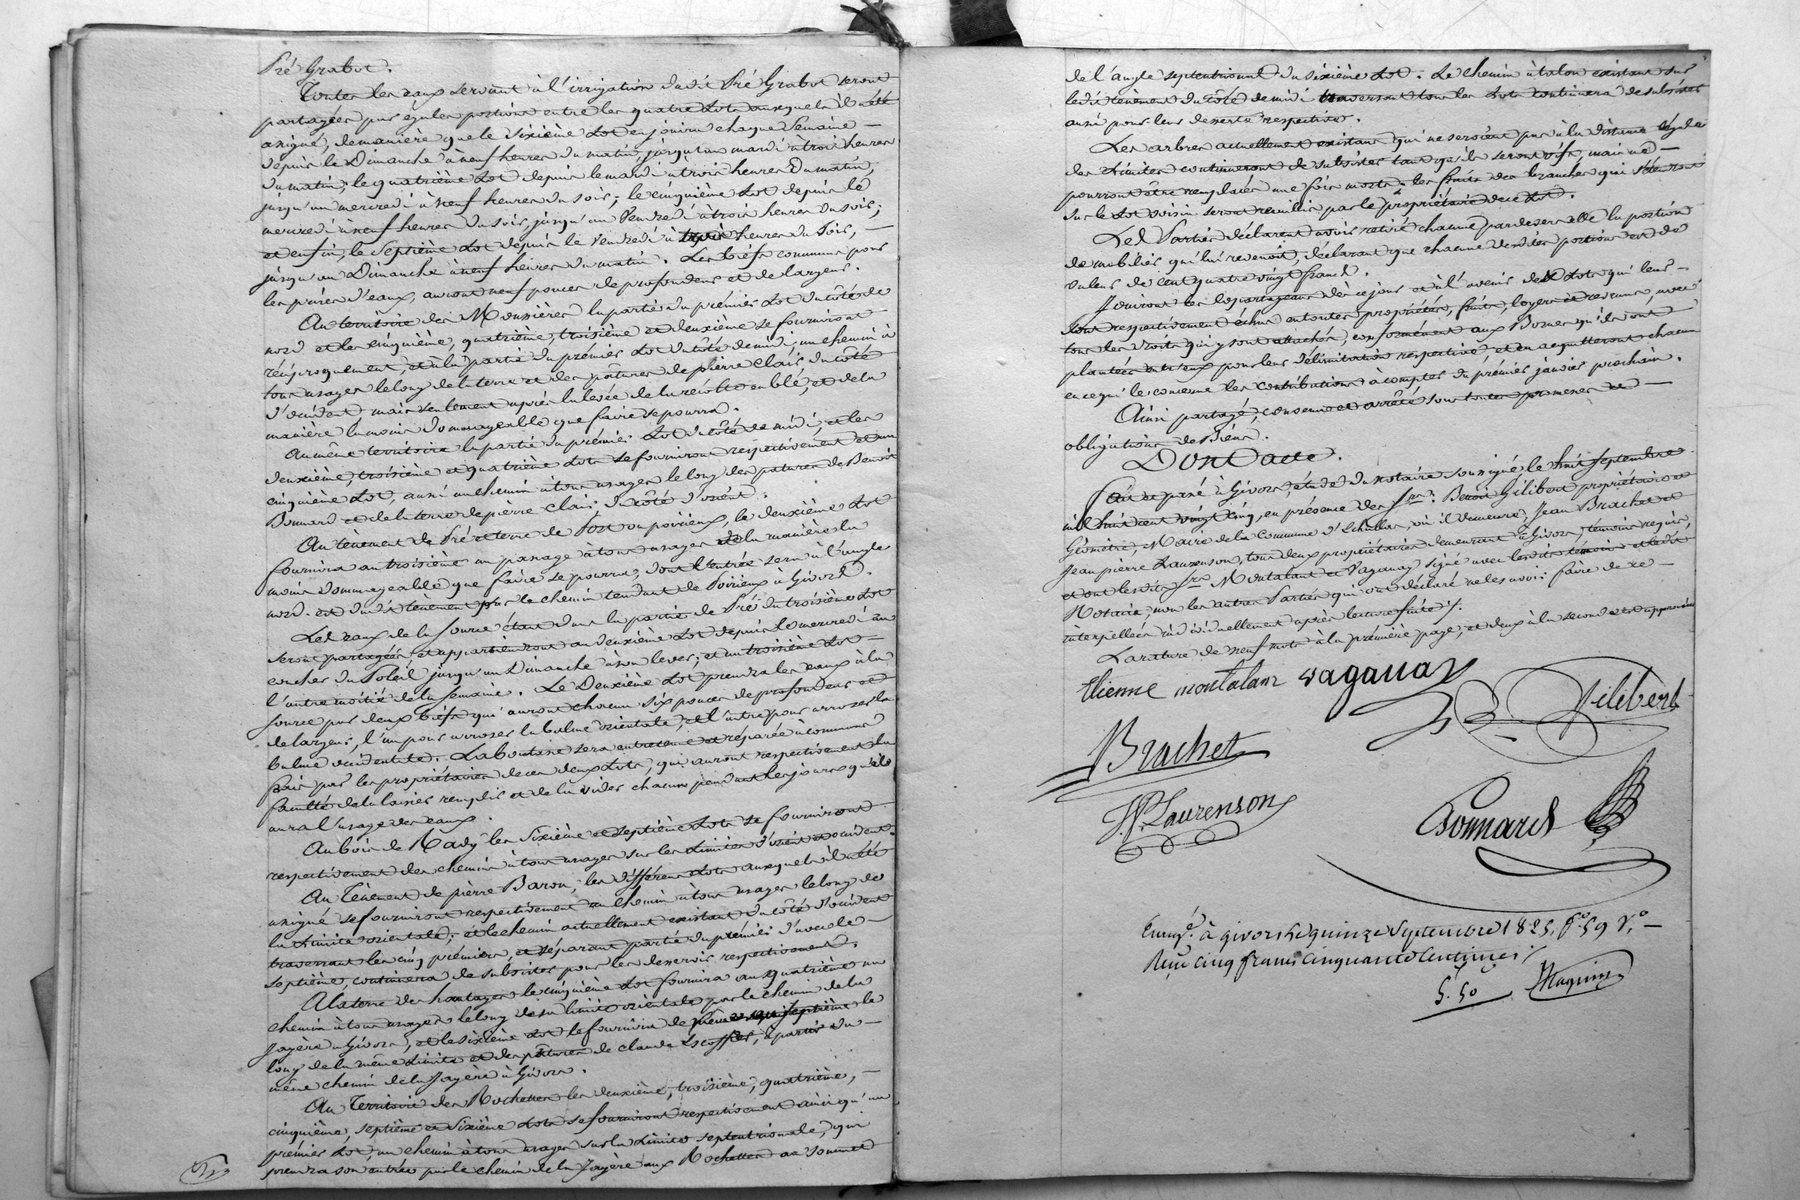 Pré Grabot.
Toutes les eaux servant à l'irrigation dudit Pré Grabot seront
partagées par égales portions entre les quatre Lots auxquels il a été
assigné, de manière que le sixième Lot en jouira chaque semaine
depuis le Dimanche à neuf heures du matin, jusqu'au mardi à trois heures
du matin; le quatrième Lot depuis le mardi à trois heures du matin,
jusqu'au mercredi à neuf heures du soir; le cinquième Lot depuis le
mercredi à neuf heures du soir, jusqu'au Vendredi à trois heures du soir;
et enfin, le septième Lot depuis le Vendredi à trois heures du soir,
jusqu'au Dimanche à neuf heures du matin. Les biefs communs pour
les prises d'eaux, auront neuf pouces de profondeur et de largeur.
Au territoire des Moussières la partie du premier Lot du côté de
nord et les cinquième, quatrième, troisième et deuxième se fourniront
réciproquement, et à la partie du premier Lot du côté de midi, un chemin à
tous usages le long de la terre et des pâtures de pierre Clais du côté
d'occident mais seulement après la levée de la récolte en blé, et de la
manière la moins dommageable que faire se pourra.
Au même territoire la partie du premier Lot du côté de midi, et les
deuxième, troisième et quatrième Lots se fourniront respectivement et au
cinquième Lot, aussi un chemin à tous usages le long des pâtures de Benoit
Bonnard et de la terre de pierre Clais, du côté d'orient.
Au tènement de Pré et terre de Port ou poirieux, le deuxième Lot
fournira au troisième un passage à tous usages de la manière la
moins dommageable que faire se pourra, dont l'entrée sera à l'angle
nord-est dudit tènement par le chemin tendant de Poirieux à Givors.
Les eaux de la source étant dans la partie de Pré du troisième Lot
seront partagées et appartiendront au deuxième Lot depuis le mercredi au
coucher du Soleil jusqu'au Dimanche à son lever; et au troisième Lot
l'autre moitié de la semaine. Le Deuxième Lot prendra les eaux à la
source par deux biefs qui auront chacun six pouces de profondeur et
de largeur, l'un pour arroser la balme orientale, et l'autre pour arroser la
balme occidentale. La boutasse sera entretenue et réparée à communs
frais par les propriétaires de ces deux Lots, qui auront respectivement la
faculté de la laisser remplir et de la vider chacun pendant les jours qu'ils
aura l'usage des eaux.
Au bois de Rady les sixième et septième Lots se fourniront
respectivement des chemins à tous usages sur les Limites d'orient et occident.
Au Tènement de pierre Baron, les différens Lots auxquels il a été
assigné se fourniront respectivement un chemin à tous usages le long de
la Limite orientale; et le chemin actuellement existant du côté d'occident
traversant les cinq premiers, et séparant partie du premier d'avec le
septième, continuera de subsister pour les desservir respectivement.
A la terre de hautages le cinquième Lot fournira au quatrième un
chemin à tous usages le long de sa limite orientale par le chemin de la
Jayère à Givors, et le sixième Lot le fournira de même au septième le
long de la même Limite et des pâtures de Claude Escoffier, à partir du
même chemin de la Jayère à Givors.
Au Territoire des Rochettes les deuxième, troisième, quatrième,
cinquième, septième et sixième Lots se fourniront respectivement ainsi qu'au
premier Lot, un chemin à tous usages sur la Limite septentrionale, qui
prendra son entrée par le chemin de la Jayère aux Rochettes au sommet
de l'angle septentrional du sixième Lot. Le chemin à talon existant sur
ledit tènement du côté de midi traversant tous les Lots continuera de subsister
aussi pour leur desserte respective.
Les arbres actuellement existans qui ne seroient pas à la distance légale
des Limites continueront de subsister tant qu'ils seront vifs, mais ne
pourront être remplacés une fois morts; les fruits des branches qui s'étendront
sur le Lot voisin seront recueillis par le propriétaire de ce Lot.
Les Parties déclarent avoir retiré chacune par devers elle la portion
de mobilier qui lui revenoit, déclarant que chacune desdites portions est de
valeur de cent quatre vingt francs.
Jouiront les copartageans dès ce jour et à l'avenir des Lots qui leur
sont respectivement échus en toutes propriétés, fruits, loyers et revenus, avec
tous les droits qui y sont attachés, conformément aux Bornes qu'ils ont
plantées entr'eux pour leur délimitation respective et en acquitteront chacun
en ce qui le concerne les contributions à compter du premier janvier prochain.
Ainsi partagé, convenu et arrêté sous toutes promesses et
obligations de Biens.
Dont acte.
Fait et passé à Givors, étude du notaire soussigné le huit septembre
mil huit cent vingt cinq, en présence des Srs. Benoit Gilibert propriétaire et
Géomètre, Maire de la Commune d'Echallas, où il demeure, Jean Brachet et
Jean pierre Laurenson, tous deux propriétaires demeurant à Givors, témoins requis,
et ont lesdits Srs Montaland et Vaganay signé avec lesdits témoins et ledit
Notaire, non les autres Parties qui ont déclaré ne le savoir faire de ce
interpellées individuellement après lecture faite.
La rature de neuf mots à la première page, et deux à la seconde est approuvée
Etienne montaland vaganay
Gilibert
Brachet
J.P. Laurenson
Bonnard
Enregé. à givors le quinze Septembre 1825, fo. 59 Vo.
Reçu cinq francs cinquante centimes
5.50